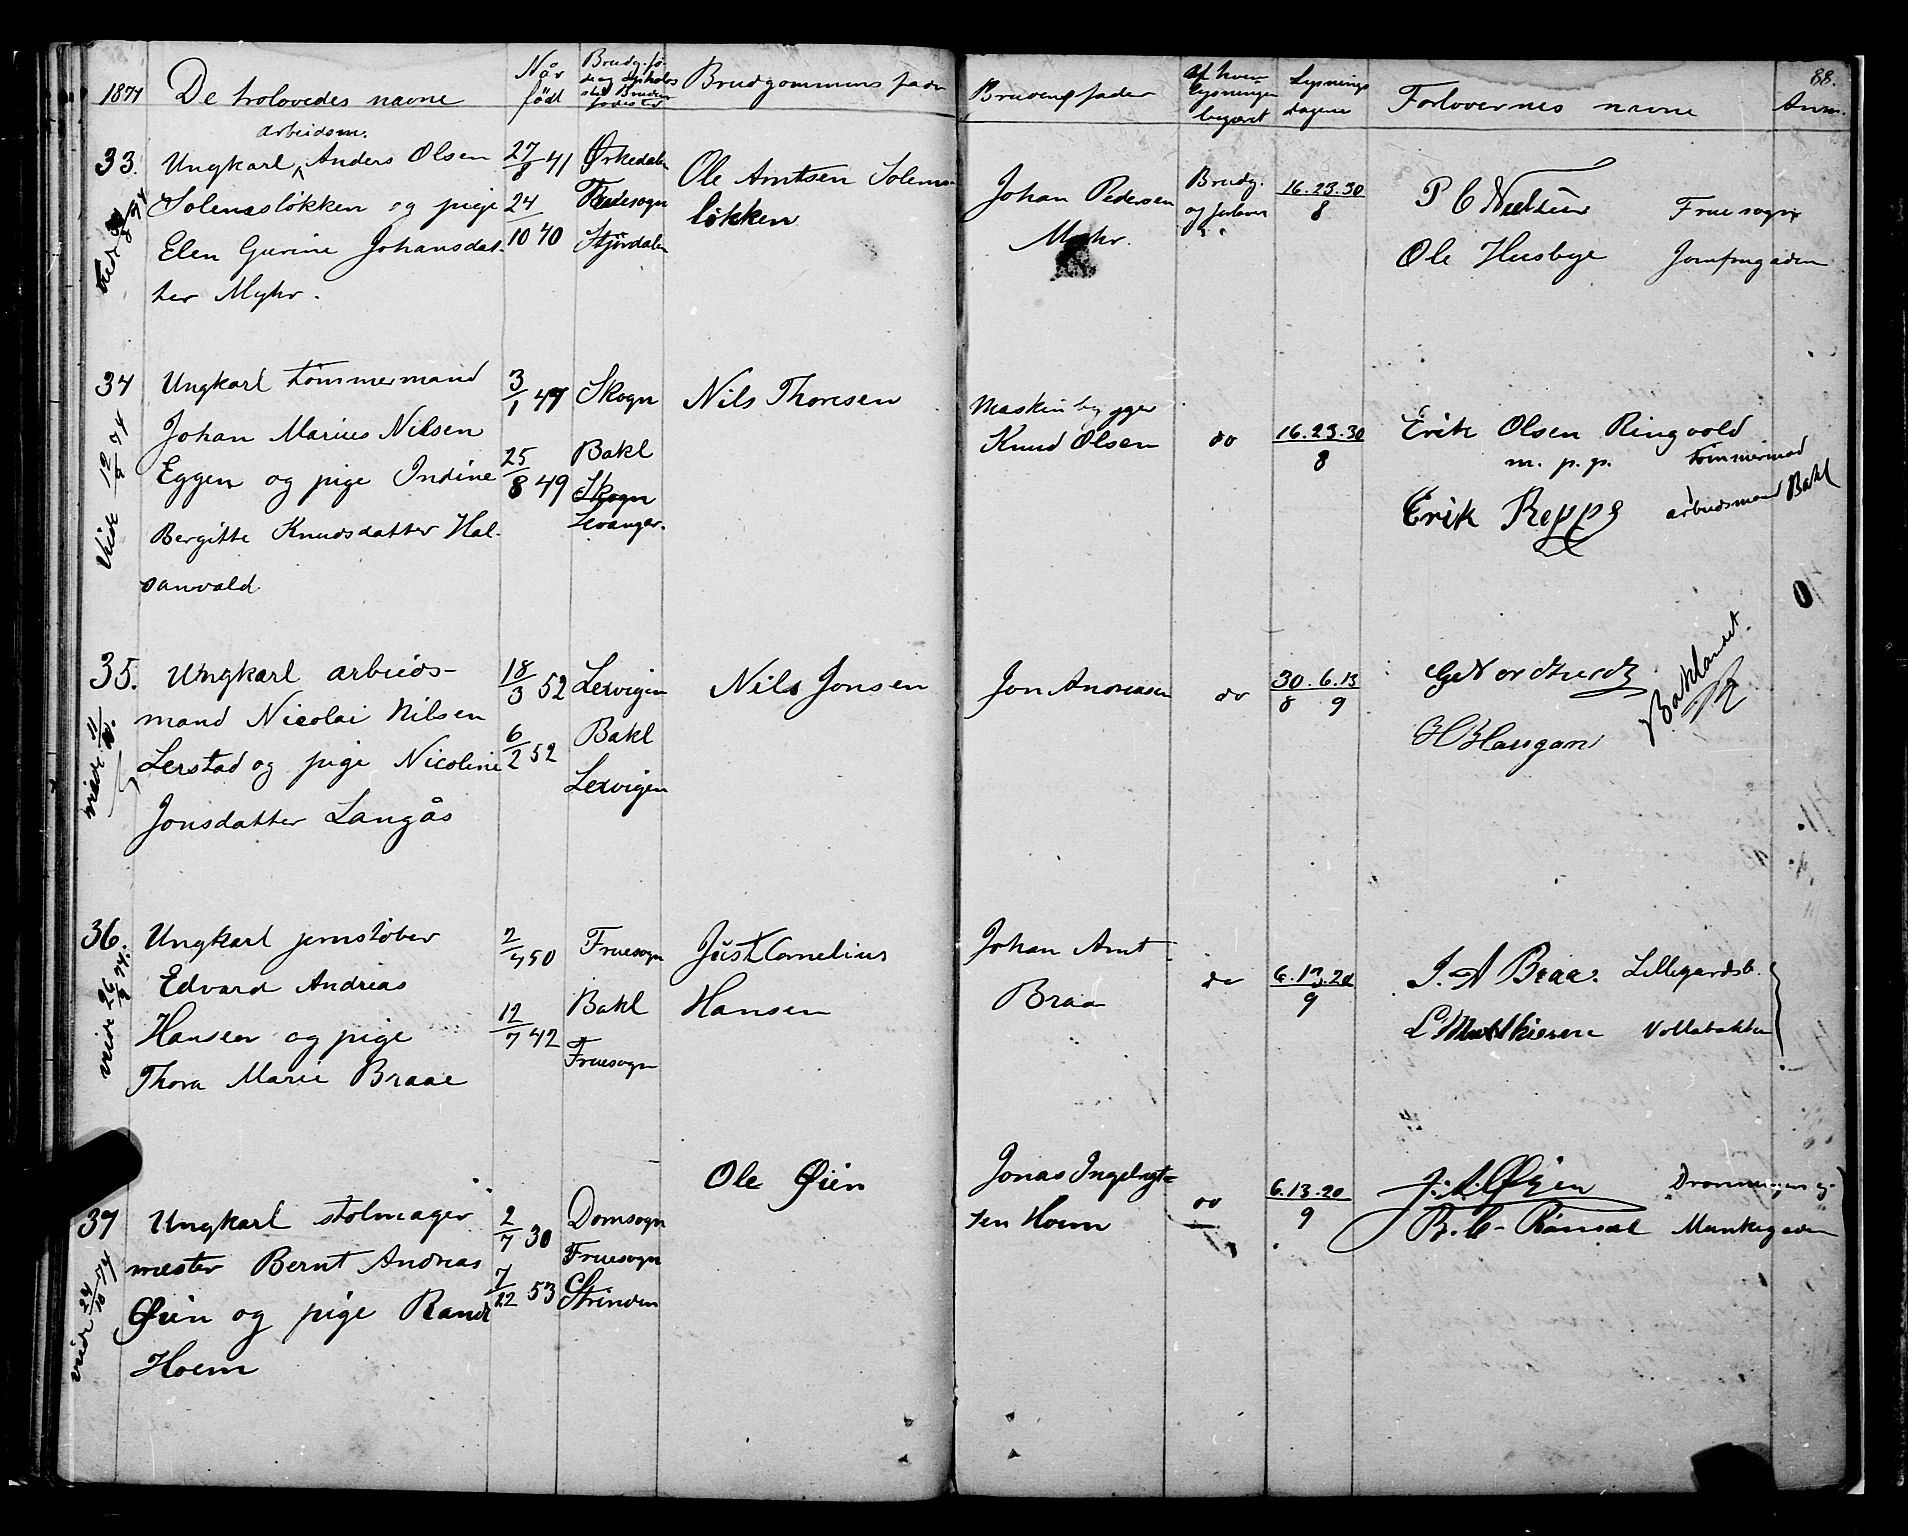 1874
De trolovedes navne
Når
født
Brudg. fø-
de og opholds
sted Brudens
fødested
Brudgommens fader
Brudens fader
Af hvem
lysningen
begjæret
Lysnings
dagene
Forlovernes navne
88.
Anm.
33.
arbeidsm.
Ungkarl Anders Olsen
Solemsløkken og pige
Elen Gurine Johansdat-
ter Myhr.
27/8 41
24/10 40
Ørkedalen
Fruesogn
Stjördalen
Ole Arntsen Solems-
løkken
Johan Pedersen
Myhr.
Brudg.
og forlover
16.23.30
8
P C
Fruesogn
Ole Husbye
Jomfrugaden
34
viede 12/9 74
Ungkarl tømmermand
Johan Marius Nilsen
Eggen og pige Indine
Bergitte Knudsdatter Hal-
sanvald
3/1 47
25/8 49
Skogn
Bakl
Skogn
Levanger.
Nils Thoresen
Maskinbygger
Knud Olsen
do
16.23.30
8
Erik Olsen Ringvold
m. p. p. tømmermand
Erik Reppe arbeidsmand Bakl
35.
viede 11/
Ungkarl arbeids-
mand Nicolai Nilsen
Lerstad og pige Nicoline
Jonsdatter Langås
18/3 52
6/2 52
Lexvigen
Bakl
Lexvigen
Nils Jonsen
Jon Andreasen
do
30. 6.13
8 9
H Haugan
Baklandet.
36.
viede 26/9 74.
Ungkarl jernstøber
Edvard Andreas
Hansen og pige
Thora Marie Braae
2/4 50
12/7 42
Fruesogn
Bakl
Fruesogn
Just Cornelius
Hansen
Johan Arnt
Braa
do
6.13.20
9
J. A Braa. Lillegårdsb.
L Mathiesen Vollabakken
37
viede 24/10 74
Ungkarl stolmager
mester Bernt Andreas
Øien og pige Randi
Hoem
2/7 30
7/22 53
Domsogn
Fruesogn
Strinden
Ole Øien
Jonas Ingebrigt-
sen Hoem
do
6.13.20
9
J. A. Øyen Dronningens g.
B. C. Munkegaden